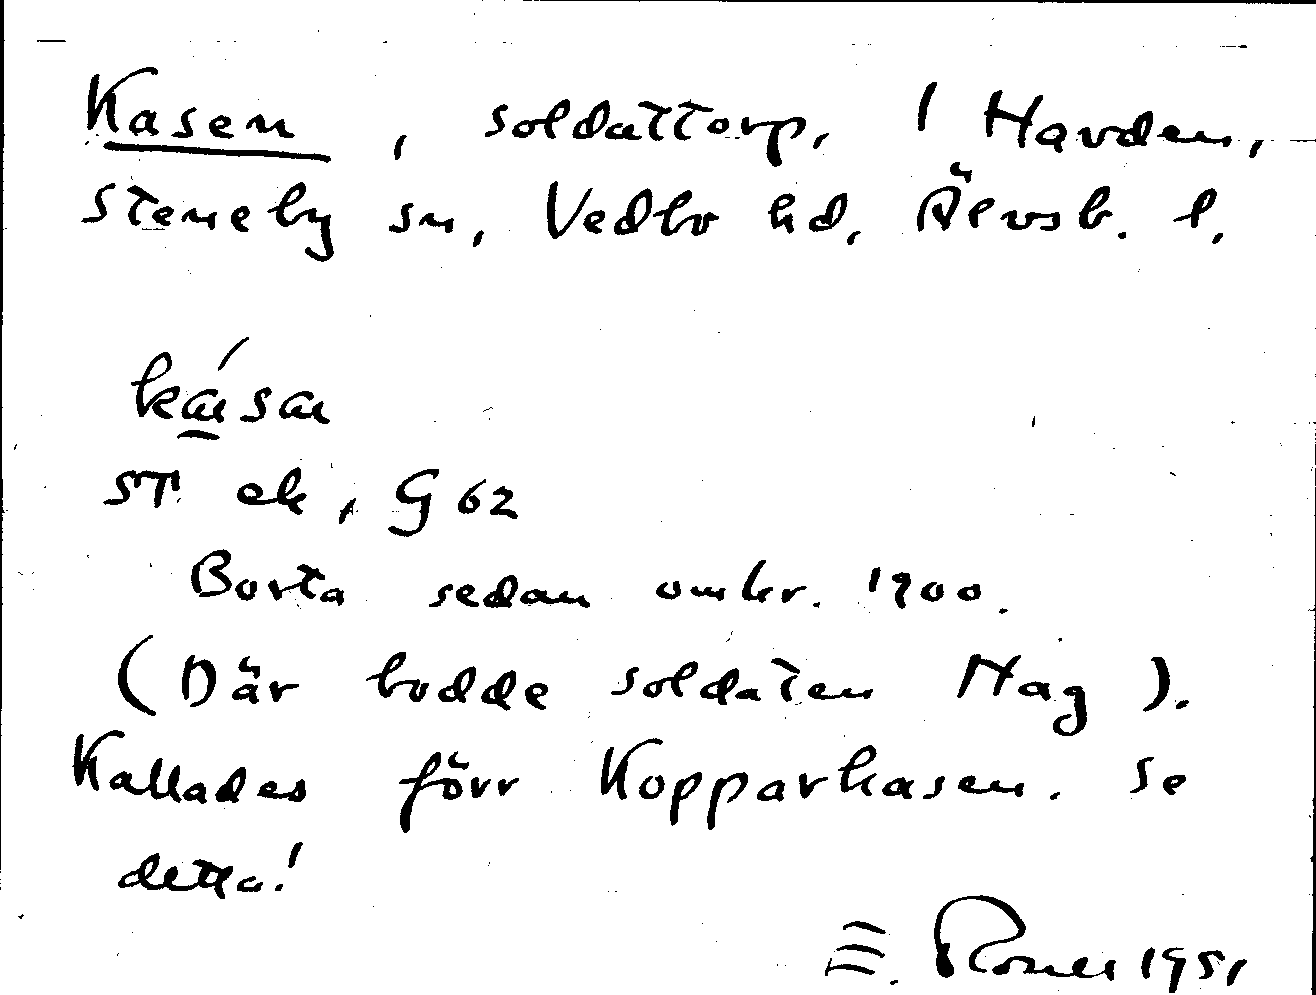 Kasen, soldattorp, / Havden,
Steneby sn, Vedbo hd, Älvsb. l.
kása
ST ek, G 62
Borta sedan omkr. 1900.
(Där bodde soldaten Hag).
Kallades förr Kopparkasen. Se
detta!
E. 1951